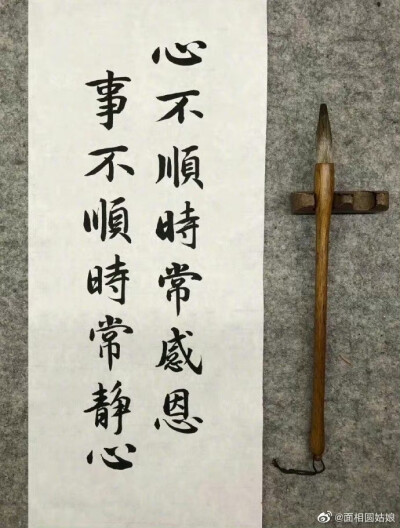 心不順時常感恩
事不順時常靜心
@面相圆姑娘